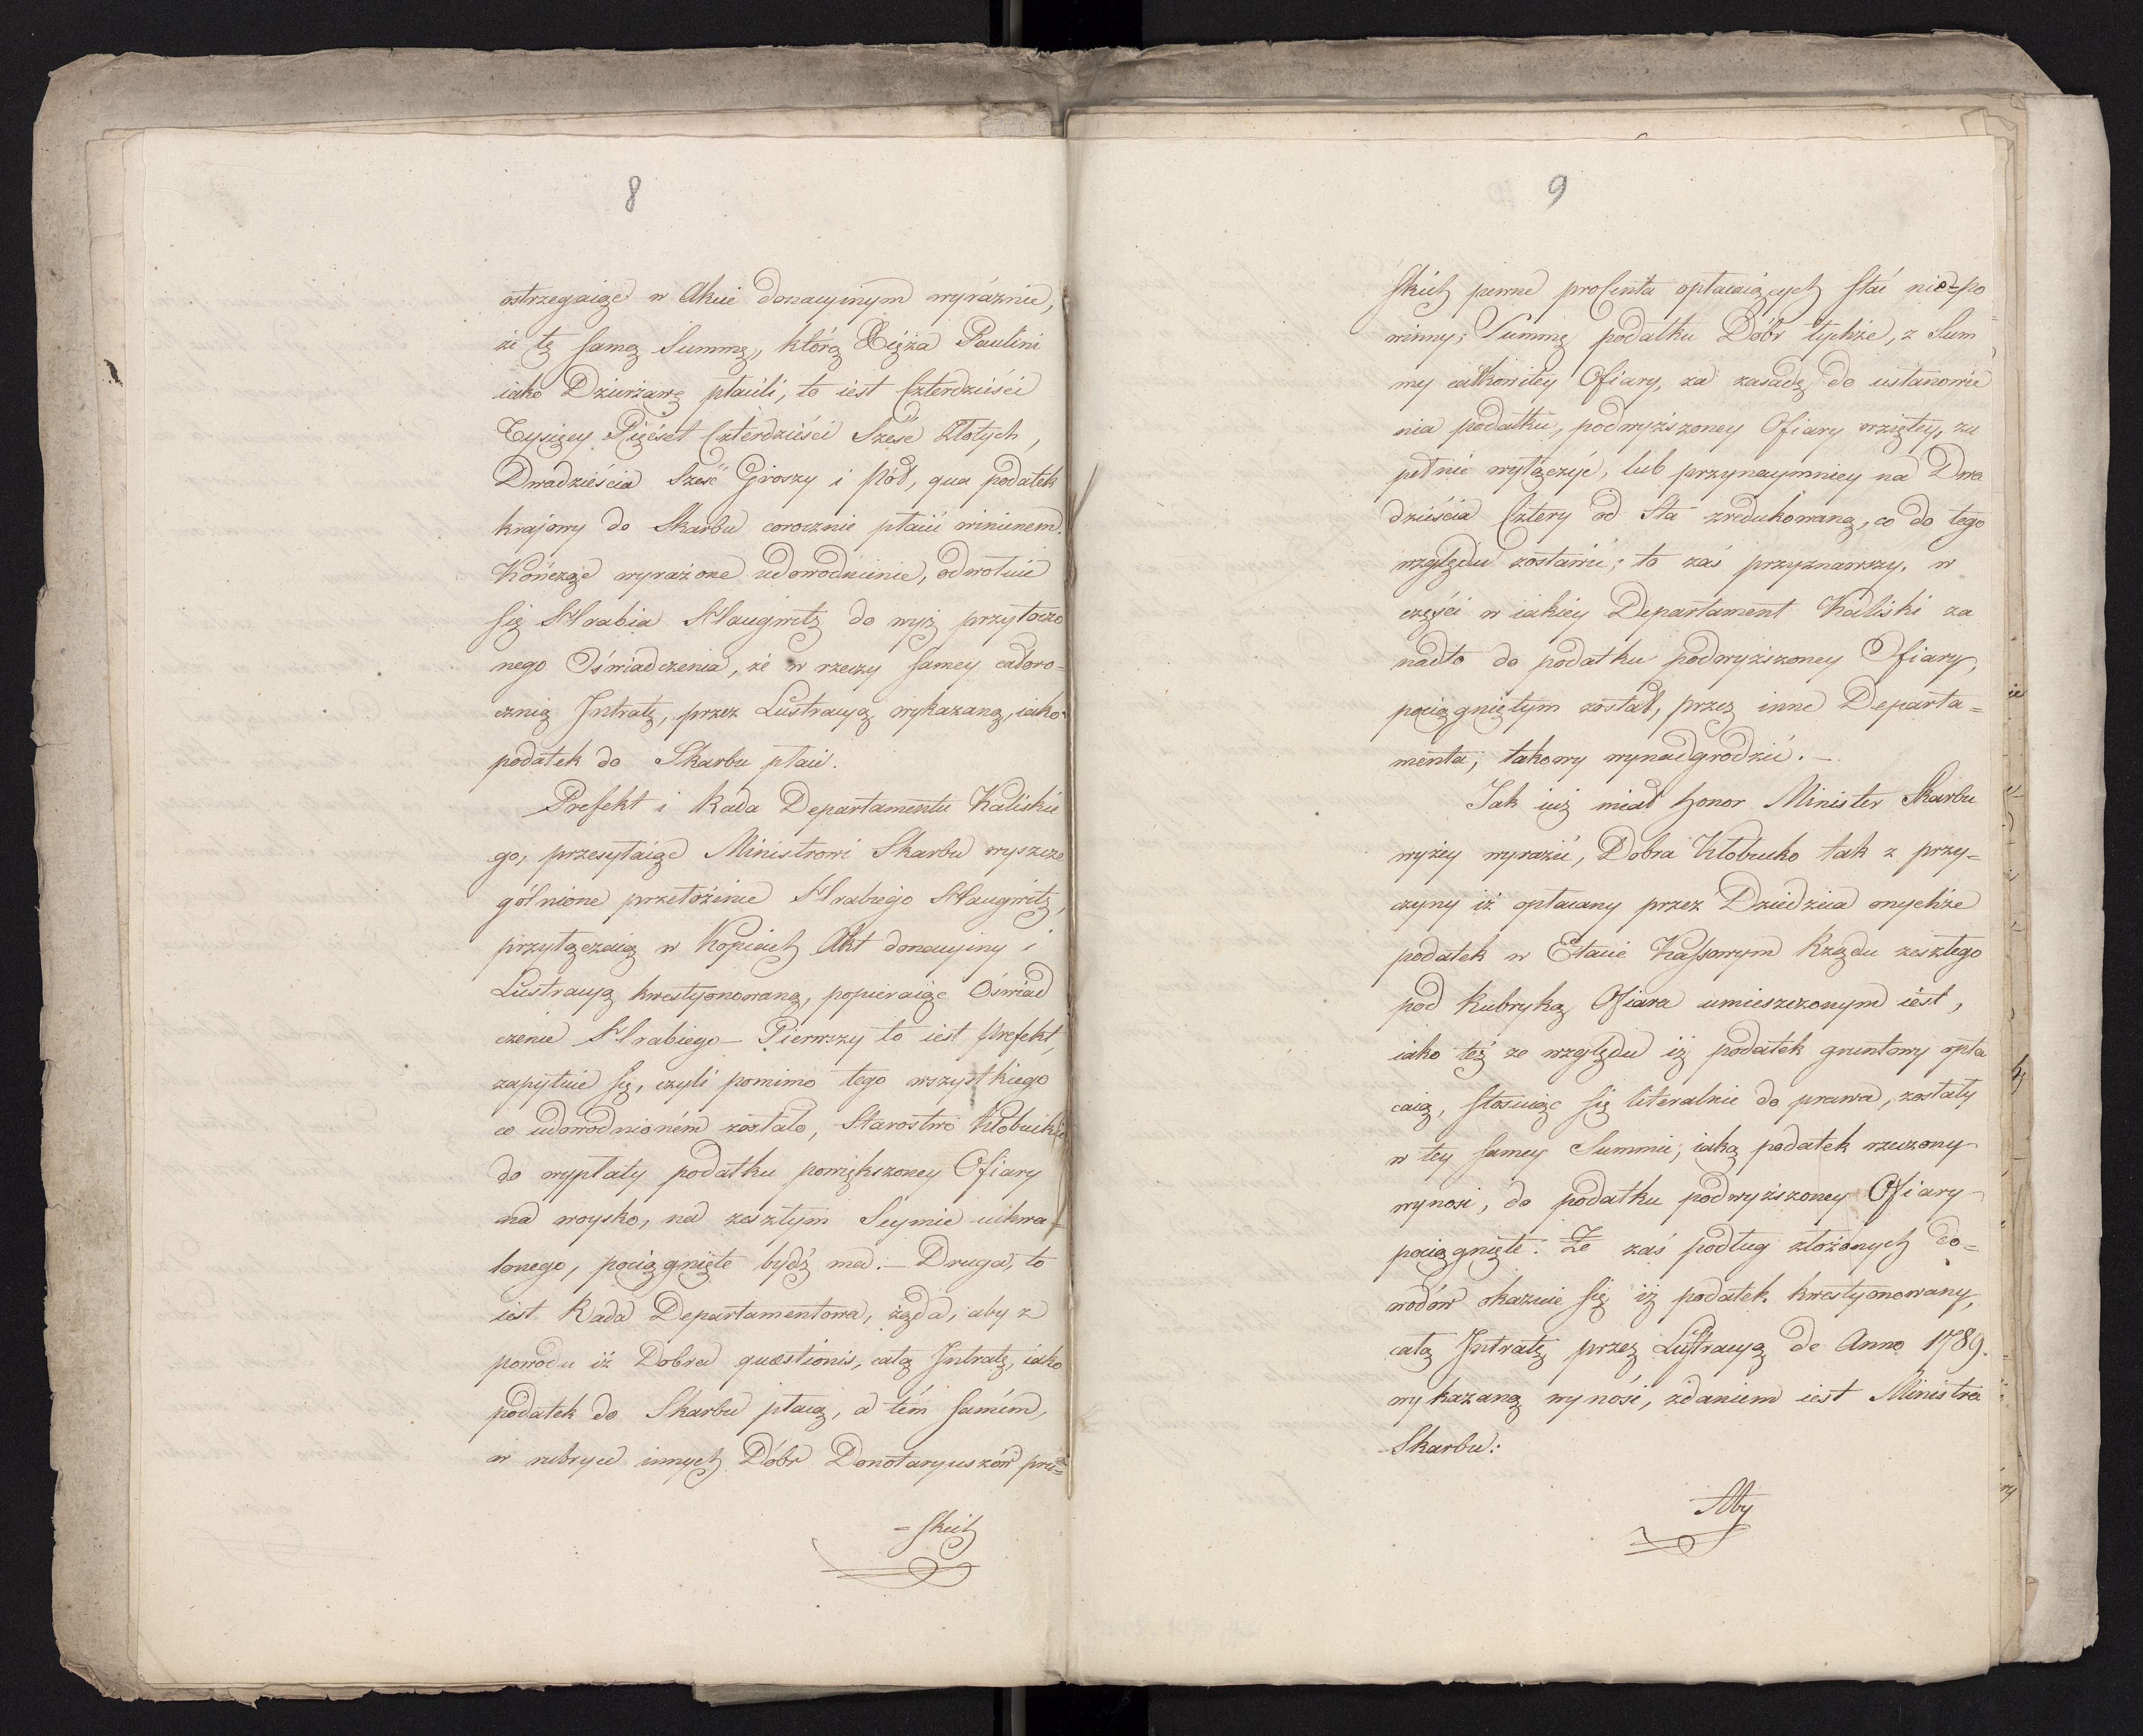 8
ostrzegaiąc w Akcie donacyinym wyráznie,
że tę samą Summę, którą Xięża Paulini
iako Dzierżawę płacili, to iest Czterdzieści
Tysięcy Pięćset Czterdzieści Sześć Złotych,
Dwadzieścia Sześć Groszy i Pół, qua podatek
krajowy do Skarbu corocznie płacić winienem.
Kończąc wyrażone udowodnienie, odwołuie
się Hrabia Haugwitz do wyż przytoczo
nego Oświadczenia, że w rzeczy samey całoro-
cznią Jntratę, przez Lustracyą wykazaną, iako
podatek do Skarbu płaci.
Prefekt i Rada Departamentu Kaliskie
go, przesyłaiąc Ministrowi Skarbu wyszcze
gólnione przełożenie Hrabiego Haugwitz,
przyłączaią w Kopiach Akt donacyiny i
Lustracyą kwestyonowaną, popieraiąc Oświad
czenie Hrabiego - Pierwszy to iest Prefekt,
zapytuie się, czyli pomimo tego wszystkiego
co udowodnioném zostało, Starostwo Kłobuckie
do wypłaty podatku powiększoney Ofiary
na woysko, na zeszłym Seymie uchwa-
lonego, pociągnięte bydź ma. - Druga, to
iest Rada Departamentowa, żąda, aby z
powodu iż Dobra quæstionis, całą Jntratę, iako
podatek do Skarbu płacą, a tém samém,
w rubryce innych Dóbr Donotaryuszów pru=
=skich
9
skich pewne procenta opłacaiących stać nie=po
winny; Summę podatku Dóbr tychże, z Sum
my całkowitey Ofiary, za zasadę do ustanowie
nia podatku, podwyższoney Ofiary wziętey, zu
pełnie wyłączyć, lub przynaymniey na Dwa
dzieścia Cztery od Sta zredukowaną, co do tego
względu zostawić; to zaś przyznawszy, w
części w iakiey Departament Kaliski za
nadto do podatku podwyższoney Ofiary,
pociągniętym został, przez inne Departa=
menta, takowy wynadgrodzić. -
Jak iuż miał honor Minister Skarbu
wyżey wyrazić, Dobra Kłobucko tak z przy=
czyny iż opłacany przez Dziedzica onychże
podatek w Etacie Kassowym Rządu zeszłego
pod Rubryką Ofiara umieszczonym iest,
iako też ze względu iż podatek gruntowy opła
caią, stosuiąc się literalnie do prawa, zostały
w tey samey Summie, iaką podatek rzeczony
wynosi, do podatku podwyższoney Ofiary
pociągnięte. Że zaś podług złożonych do=
wodów okazuie się iż podatek kwestyonowany,
całą Jntratę przez Lustracyą de Anno 1789.
wykazaną wynosi, zdaniem iest Ministra
Skarbu:
Aby